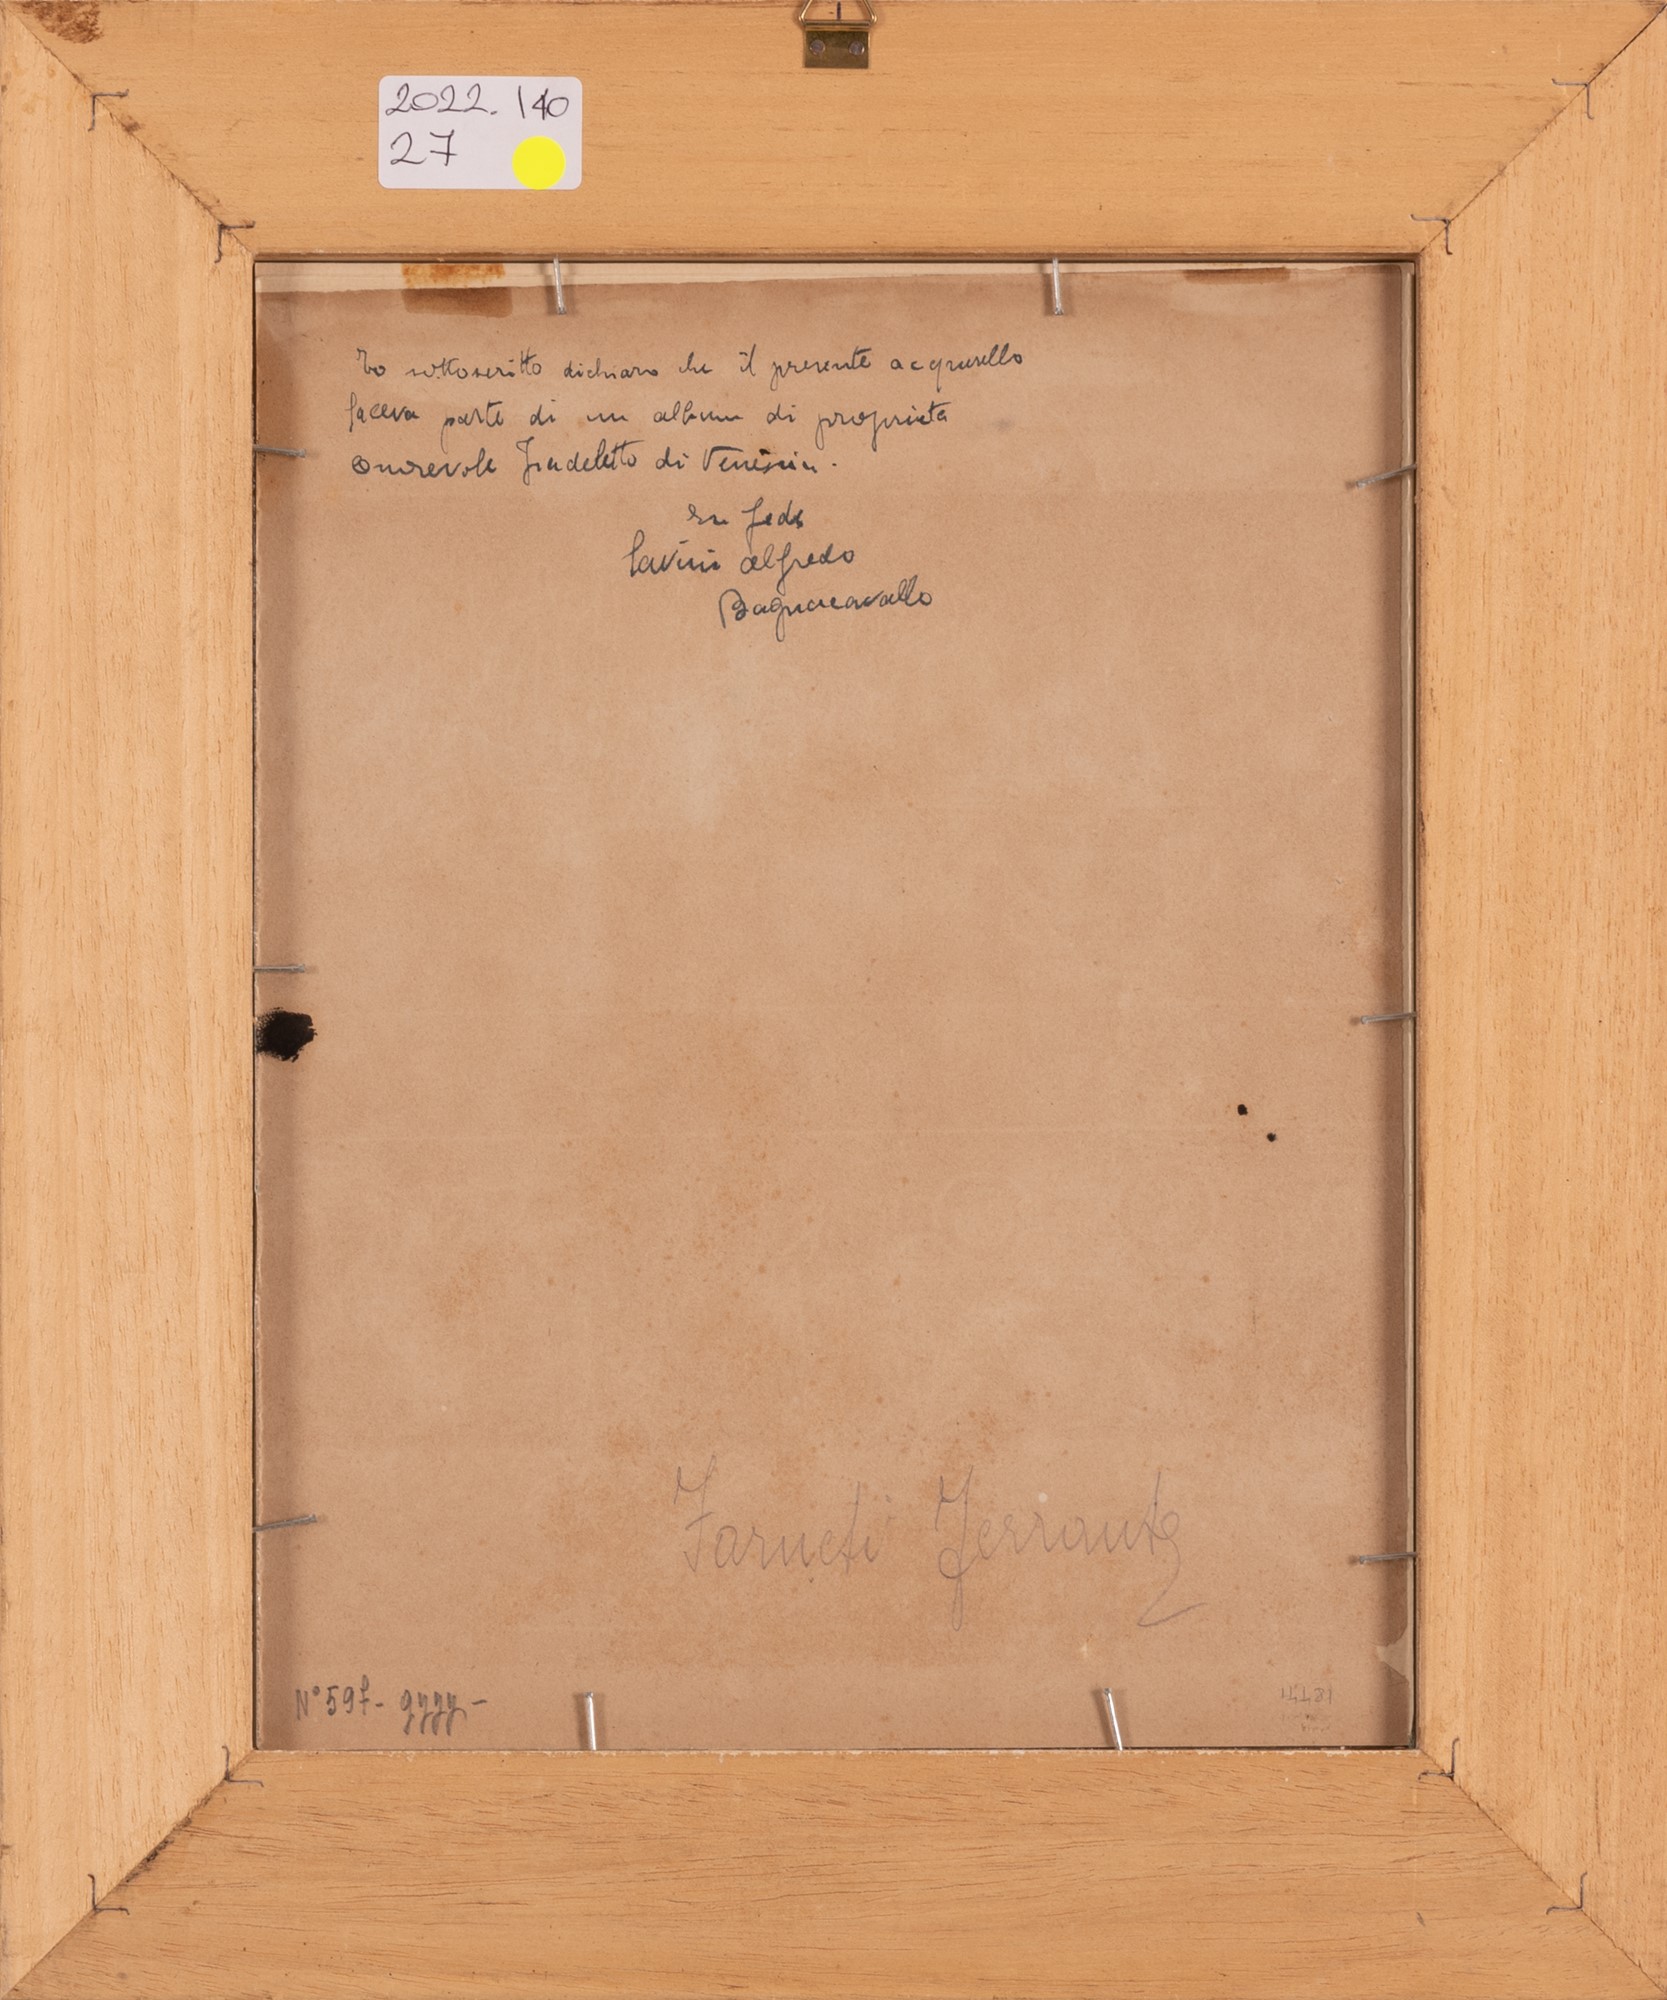 2022.140
27
Io sottoscritto dichiaro che il presente acquerello
faceva parte di un album di proprietà
onorevole Fradeletto di Venezia.
In fede
Savini Alfredo
Bagnacavallo
Farneti Ferrante
N° 597-